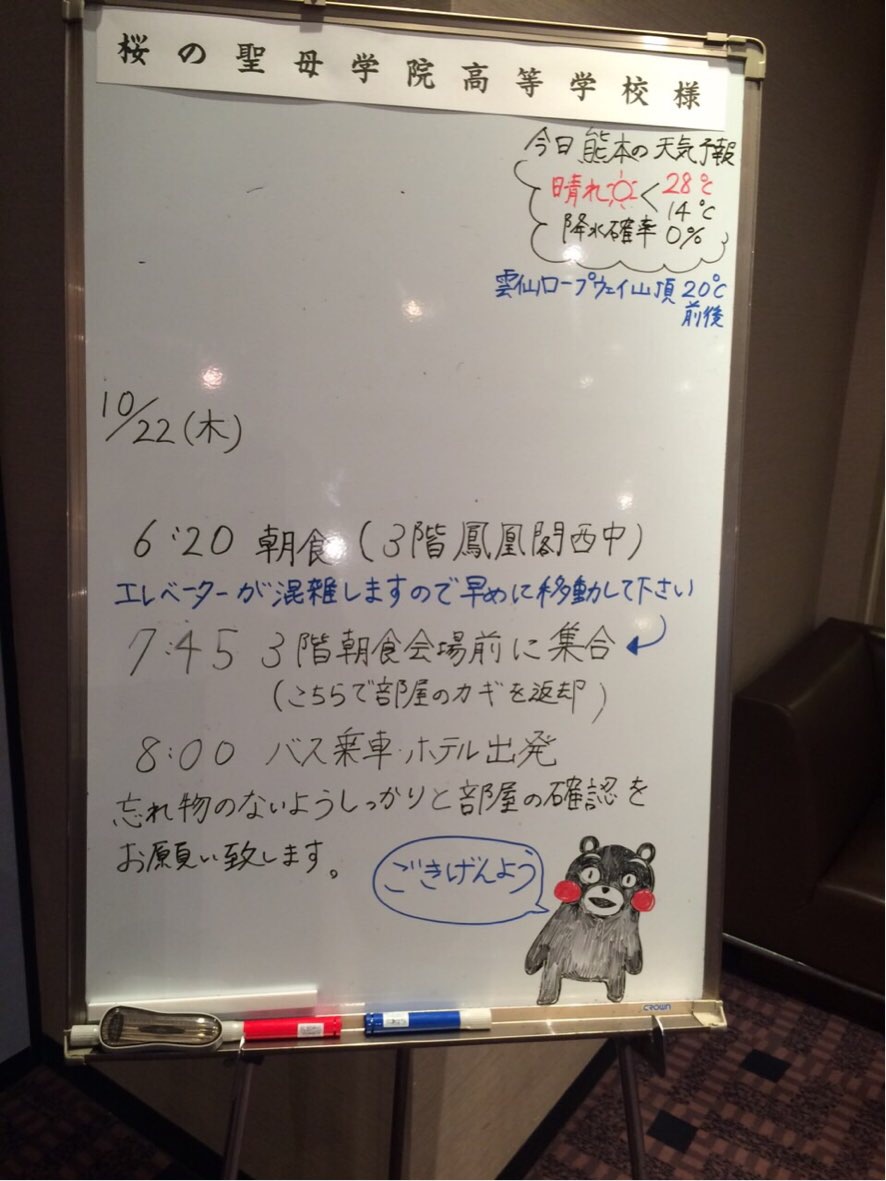 桜の聖母学院高等学校様
今日熊本の天気予報
晴れ 28℃
14℃
降水確率 0%
雲仙ロープウェイ山頂 20℃
前後
10/22(木)
6:20 朝食(3階鳳凰閣西中)
エレベーターが混雑しますので早めに移動して下さい
7:45 3階朝食会場前に集合
(こちらで部屋のカギを返却)
8:00 バス乗車・ホテル出発
忘れ物のないようしっかりと部屋の確認を
お願い致します。
ごきげんよう
CROWN